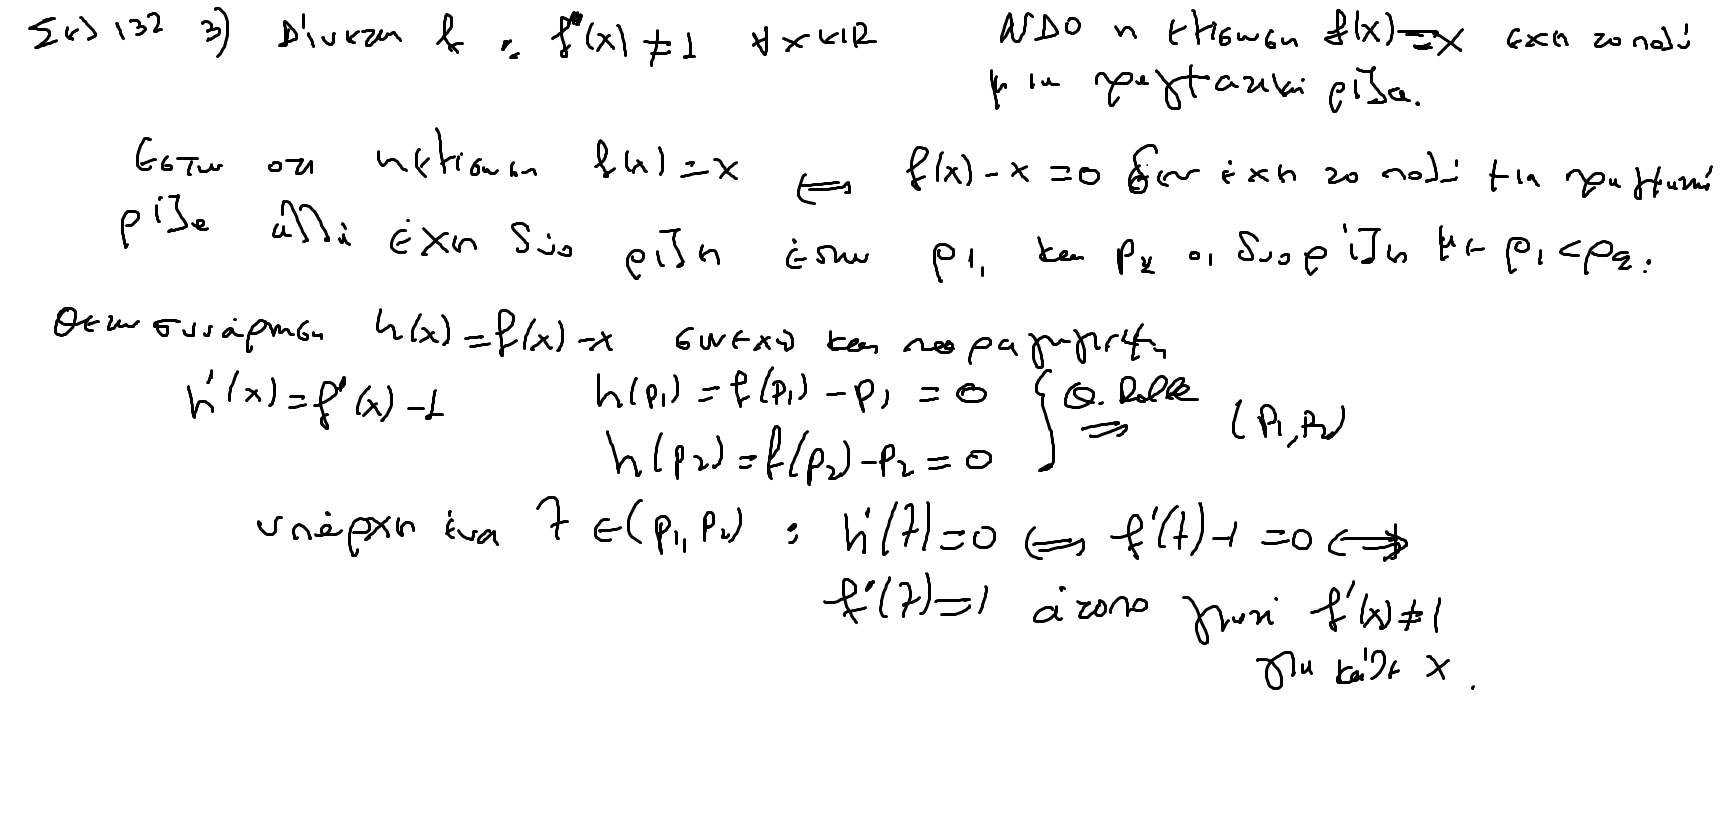 Σελ 132 3) Δίνεται f : f'(x) ≠ 1 ∀ x ∈ ℝ ΝΔΟ η εξίσωση f(x) = x έχει το πολύ
μια πραγματική ρίζα.
Έστω οτι η εξίσωση f(x) = x ⇔ f(x) - x = 0 δεν έχει το πολύ μια πραγματική
ρίζα αλλά έχει δύο ρίζη έστω ρ1, και ρ2 οι δύο ρίζη με ρ1 < ρ2.
Θέτω συνάρτηση h(x) = f(x) - x συνεχή και παραγωγίσιμη
h'(x) = f'(x) - 1 h(ρ1) = f(ρ1) - ρ1 = 0 } Θ. Rolle ⇒ (ρ1, ρ2)
h(ρ2) = f(ρ2) - ρ2 = 0
υπάρχη ένα ξ ∈ (ρ1, ρ2) : h'(ξ) = 0 ⇔ f'(ξ) - 1 = 0 ⇔
f'(ξ) = 1 άτοπο γιατί f'(x) ≠ 1
για κάθε x.